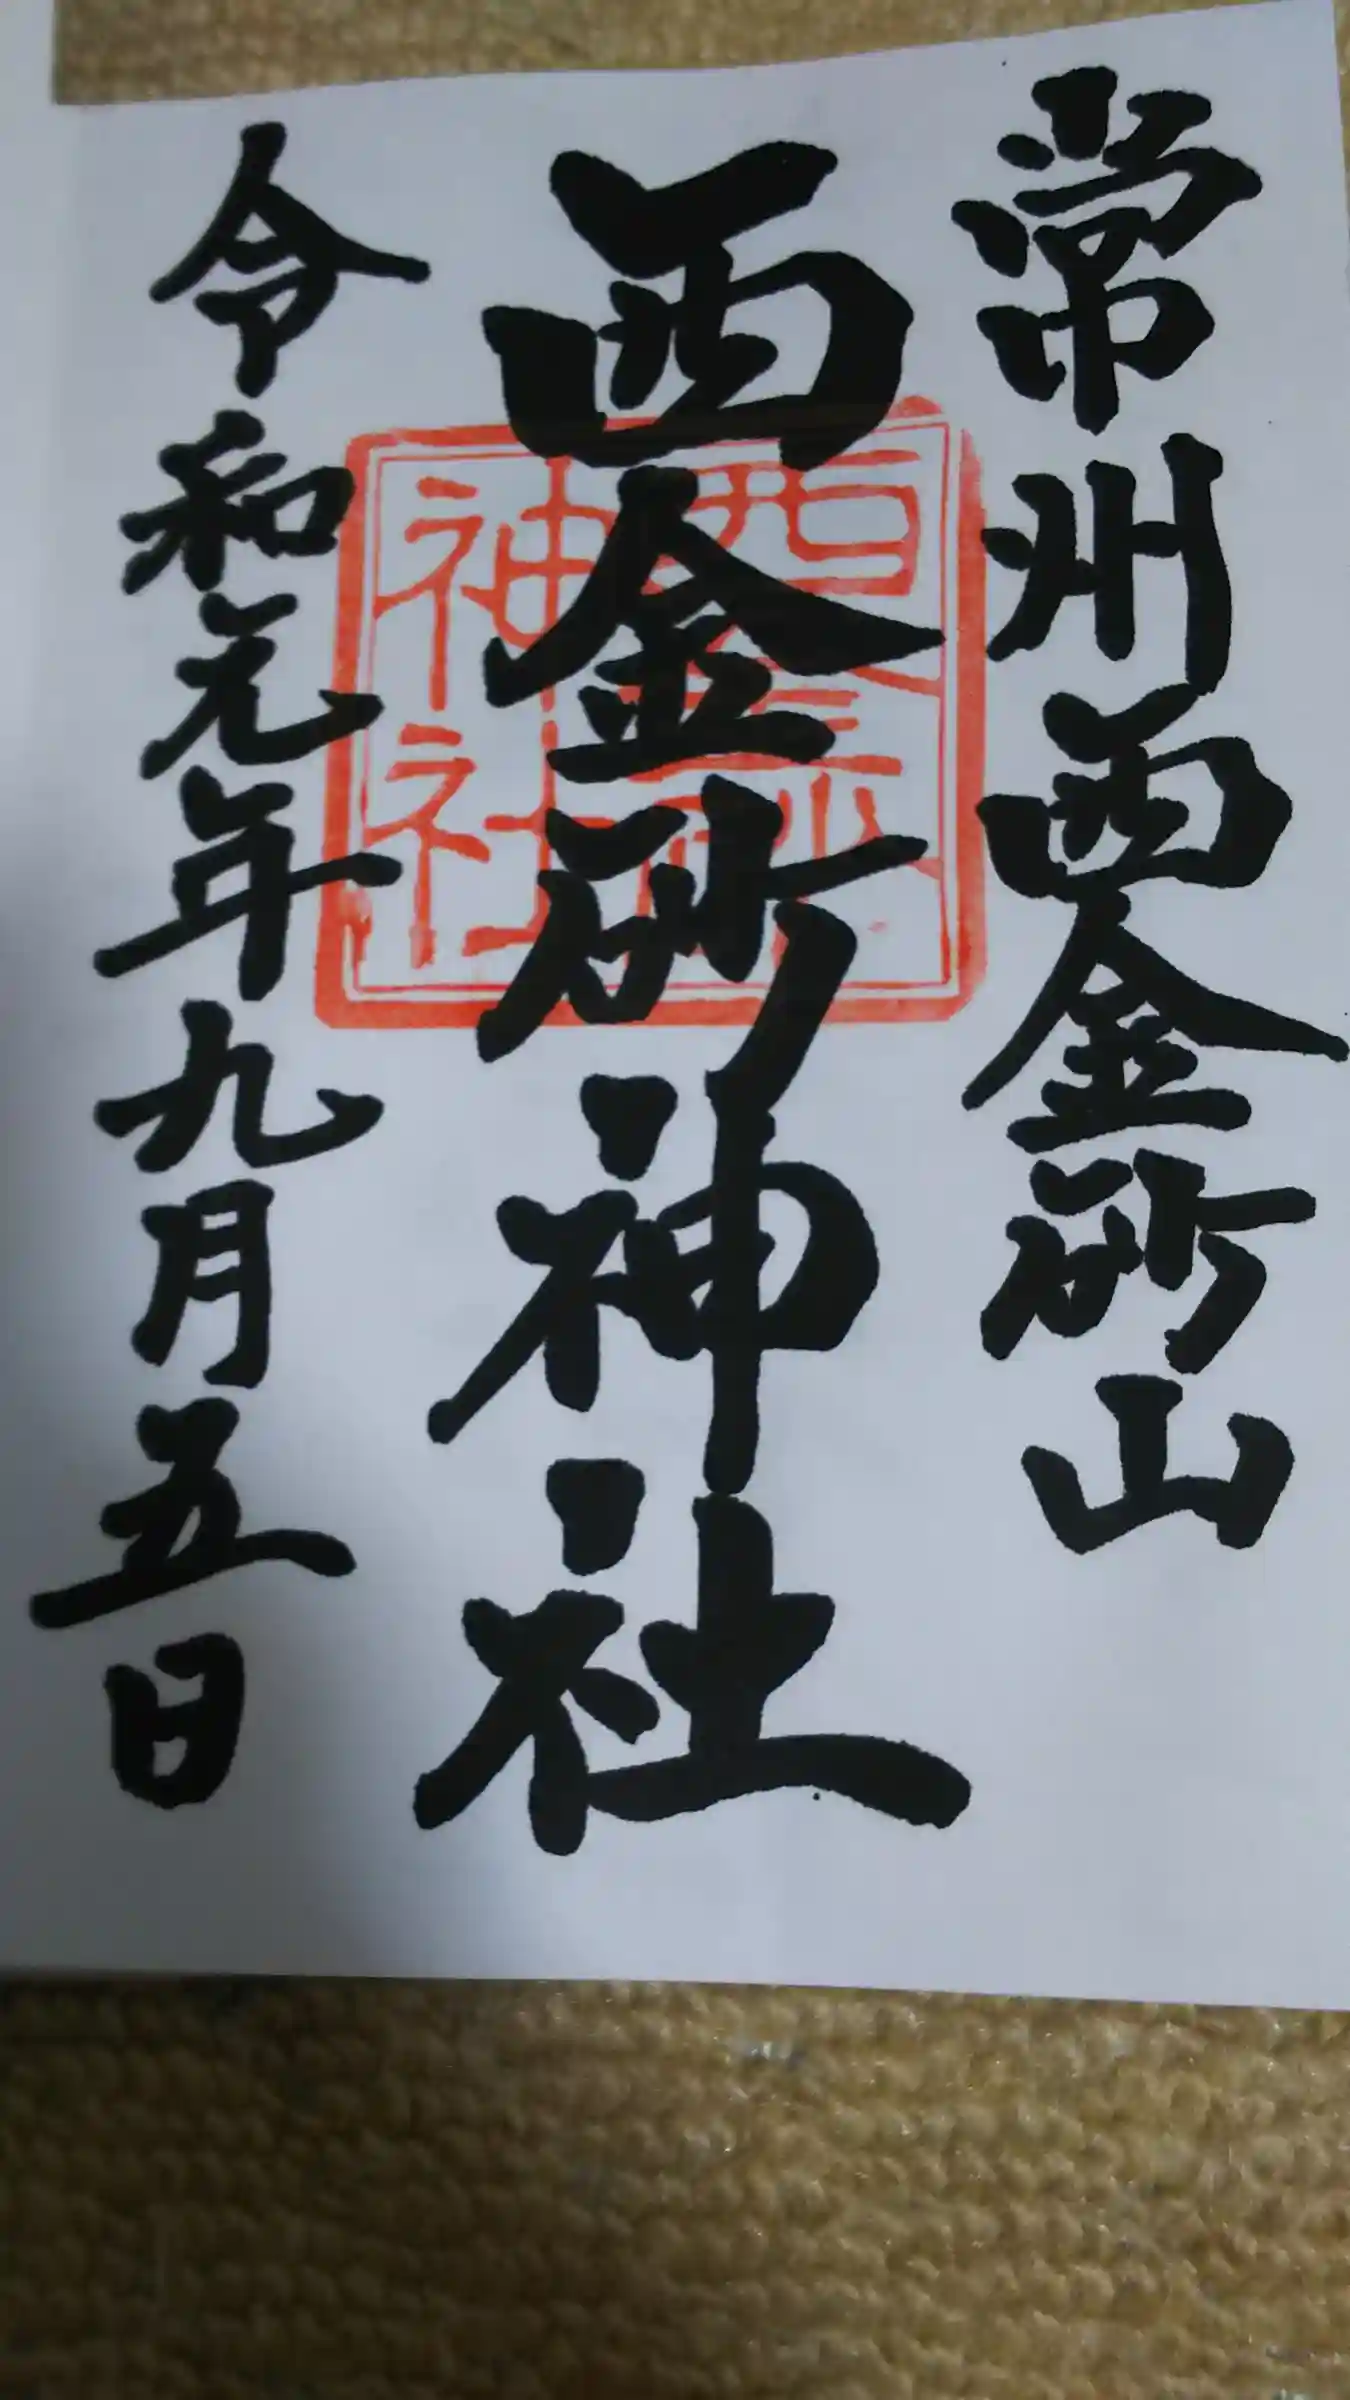 常州西金砂山
西金砂神社
令和元年九月五日
西金砂
神社